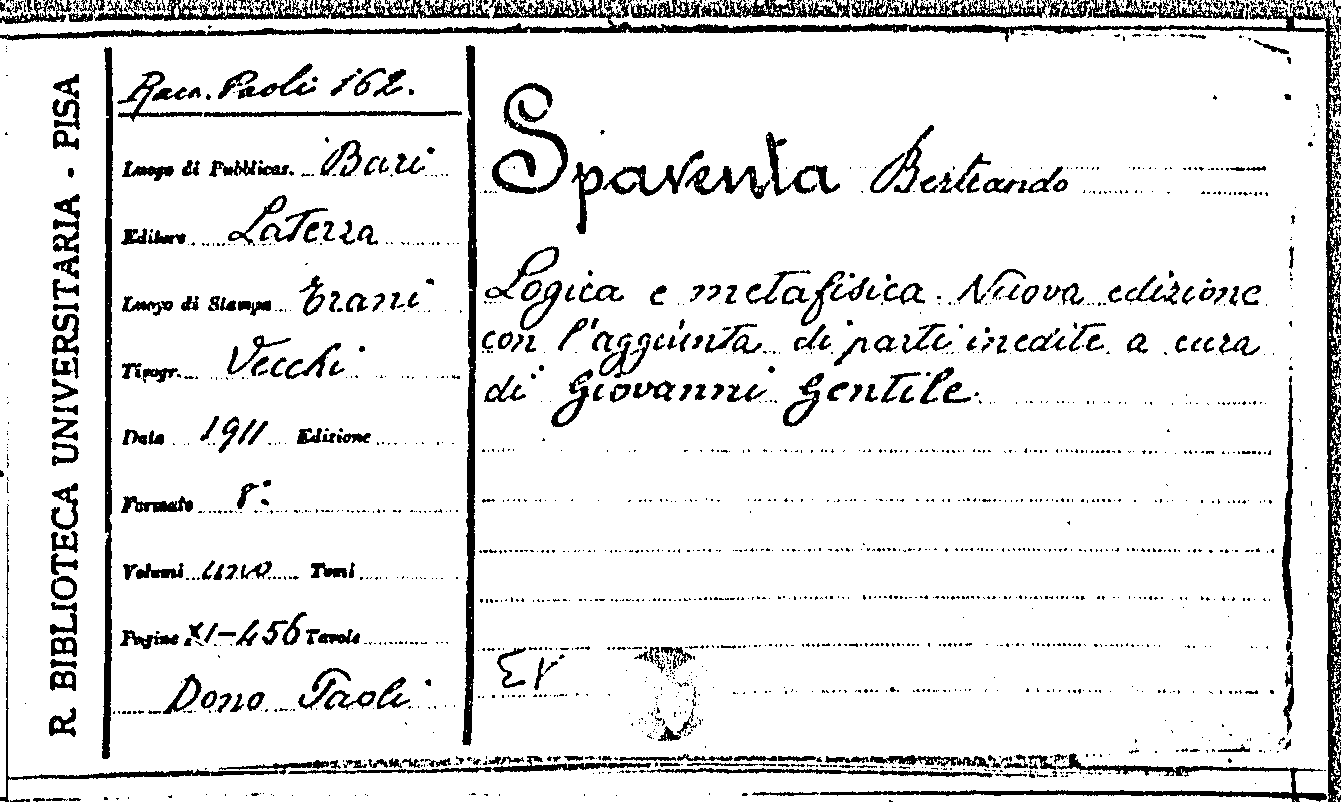 R. BIBLIOTECA UNIVERSITARIA - PISA
Racc. Paoli 162.
Luogo di Pubblicaz. Bari
Editore Laterza
Luogo di Stampa Trani
Tipogr. Vecchi
Data 1911 Edizione
Formato 8°
Volumi uno Tomi
Pagine XI-456 Tavole
Dono Paoli
Spaventa Bertrando
Logica e metafisica. Nuova edizione
con l'aggiunta di parti inedite a cura
di Giovanni Gentile.
EV